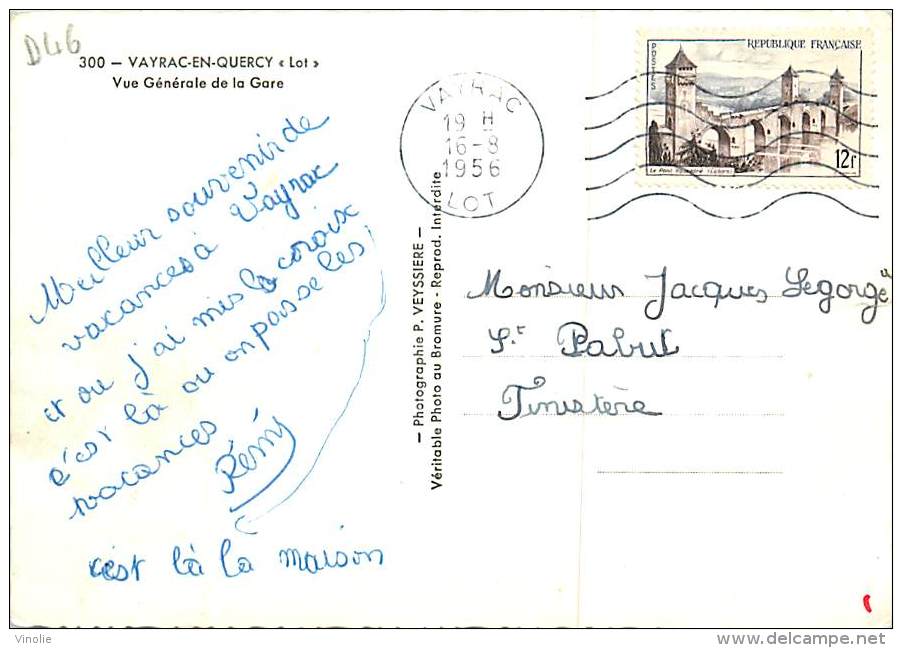 D46
300 — VAYRAC-EN-QUERCY « Lot »
Vue Générale de la Gare
Meilleur souvenir de
vacances à Vayrac
et ou j'ai mis la croix
c'est là ou on passe les
vacances
Rémy
c'est là la maison
— Photographie P. VEYSSIERE —
Véritable Photo au Bromure - Reprod. Interdite
VAYRAC
19 H
16-8
1956
LOT
REPUBLIQUE FRANÇAISE
POSTES
12F
Monsieur Jacques Legorgë
St Pabut
Finistère
Vinolie
www.delcampe.net